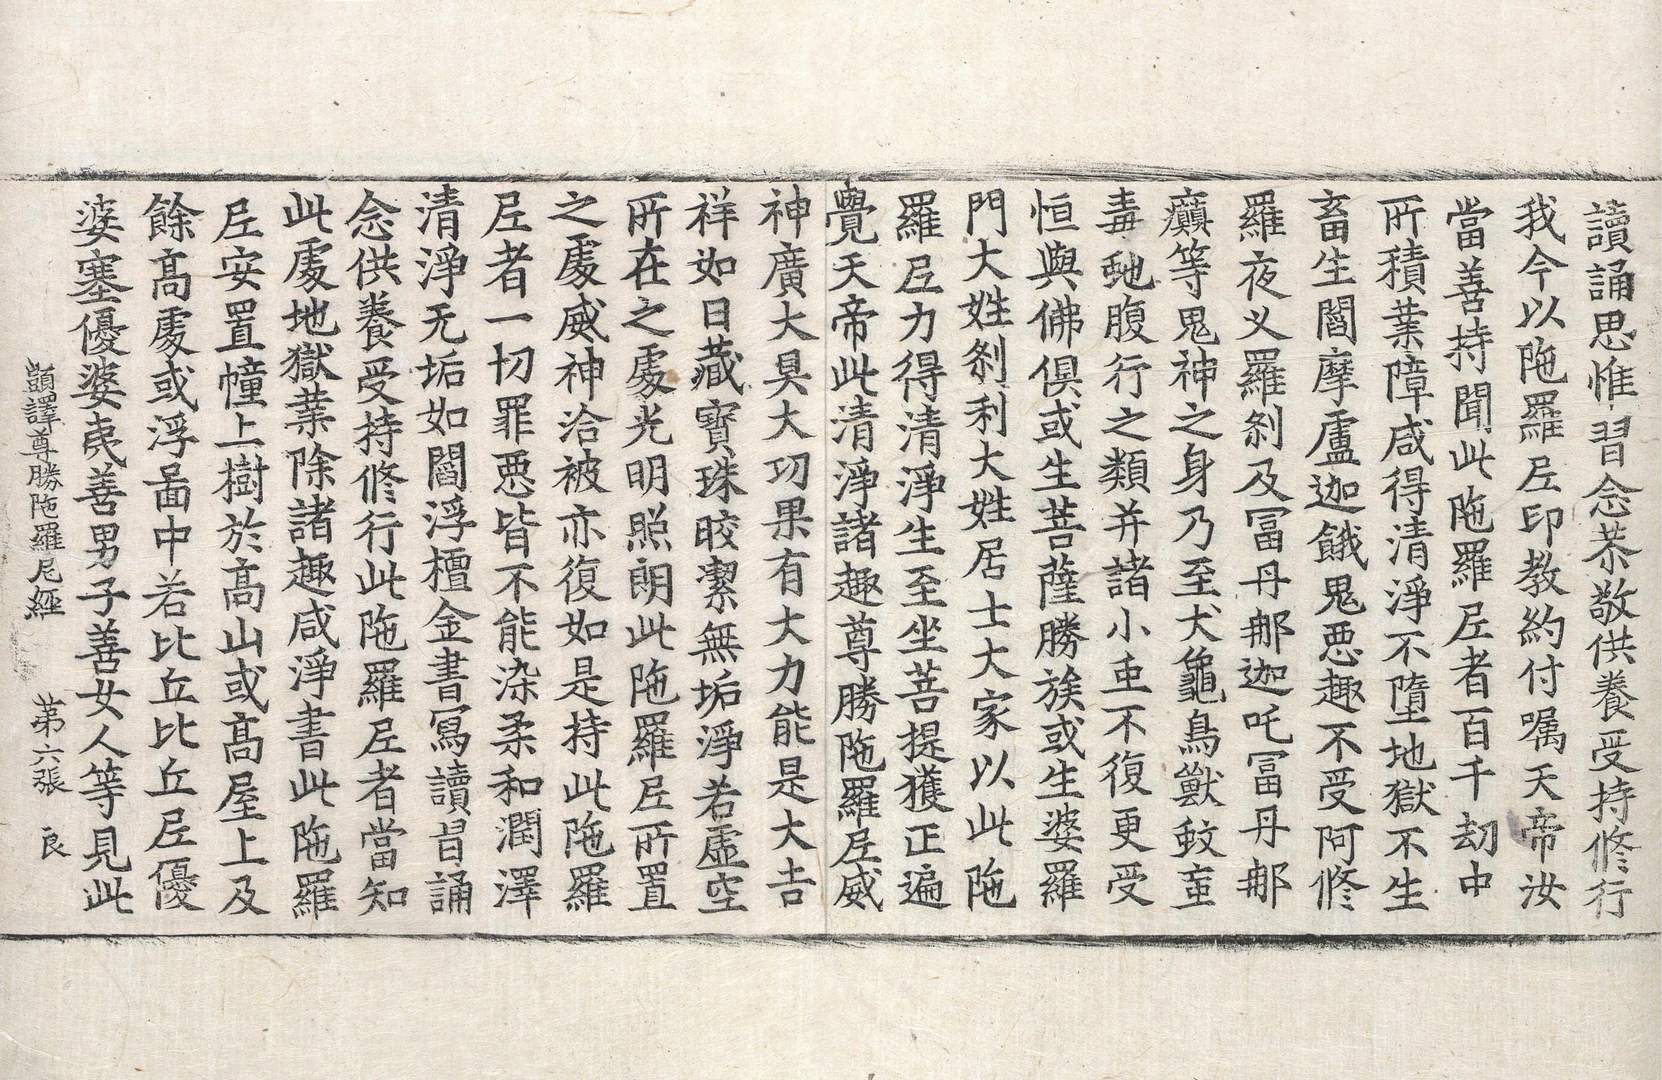 讀誦思惟習念恭敬供養受持修行
我今以陁羅尼印教約付嘱天帝汝
當善持聞此陁羅尼者百千劫中
所積業障咸得清淨不墮地獄不生
畜生閻摩盧迦餓鬼惡趣不受阿修
羅夜义羅刹及冨丹𨚗迦吒冨丹𨚗
癲等鬼神之身乃至犬龜鳥獸蚊䖟
毒虵腹行之類并諸小虫不復更受
恒與佛俱或生菩薩勝族或生婆羅
門大姓刹利大姓居士大家以此陁
羅尼力得清淨生至坐菩提獲正遍
覺天帝此清淨諸趣尊勝陁羅尼威
神廣大具大功果有大力能是大吉
祥如日藏寶珠皎潔無垢淨若虛空
所在之處光明照朗此陁羅尼所置
之處威神洽被亦復如是持此陁羅
尼者一切罪惡皆不能染柔和潤澤
清淨无垢如閻浮檀金書寫讀㫖誦
念供養受持修行此陁羅尼者當知
此處地獄業除諸趣咸淨書此陁羅
尼安置幢上樹於高山或高屋上及
餘高處或浮啚中若比丘比丘尼優
婆塞優婆夷善男子善女人等見此
顗譯尊勝陁羅尼經 苐六張 良